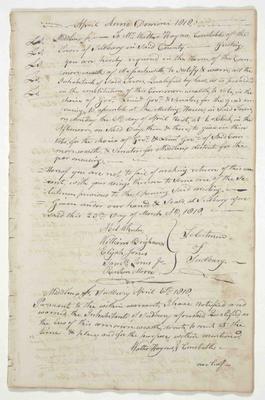 April Anno Domini 1819
Middlesex ss. To Mr. Walter Haynes, Constable of the
Town of Sudbury in Said County Greeting
you are hereby required in the name of the Com-
monwealth of Massachusetts to Notify & warn all the
Inhabitants of Said Town, qualified by law, as is provided
in the constitution of this Commonwealth, to vote in the
choice of Gov. Lieut. Gov. & Senators for the year en-
suing, to assemble at the Meeting House in Said Town
on Monday the 5th day of April next at o Clock in the
afternoon, on Said Day, then & there to give in their
Votes for the choice of Gov. & Lieut. Gov. of Said Com-
monwealth & Senators for Middlesex district for the
year ensuing.
Hereof you are not to fail of making return of this war-
rant, with your doings thereon to Some one of the Se-
lectmen previous to the opening Said meeting.
Given under our hand & Seals at Sudbury afore
Said this 20th Day of March AD. 1819
William Brigham
Elijah Jones
Selectmen
of
Sudbury.
Middlesex ss. Sudbury April 5th 1819
Pursuant to the within warrant I have notified and
warned the Inhabitants of Sudbury aforesaid qualified as
the law of this commonwealth, to meet at the
time & place and for the purpose within mentioned
Walter Haynes, Constable